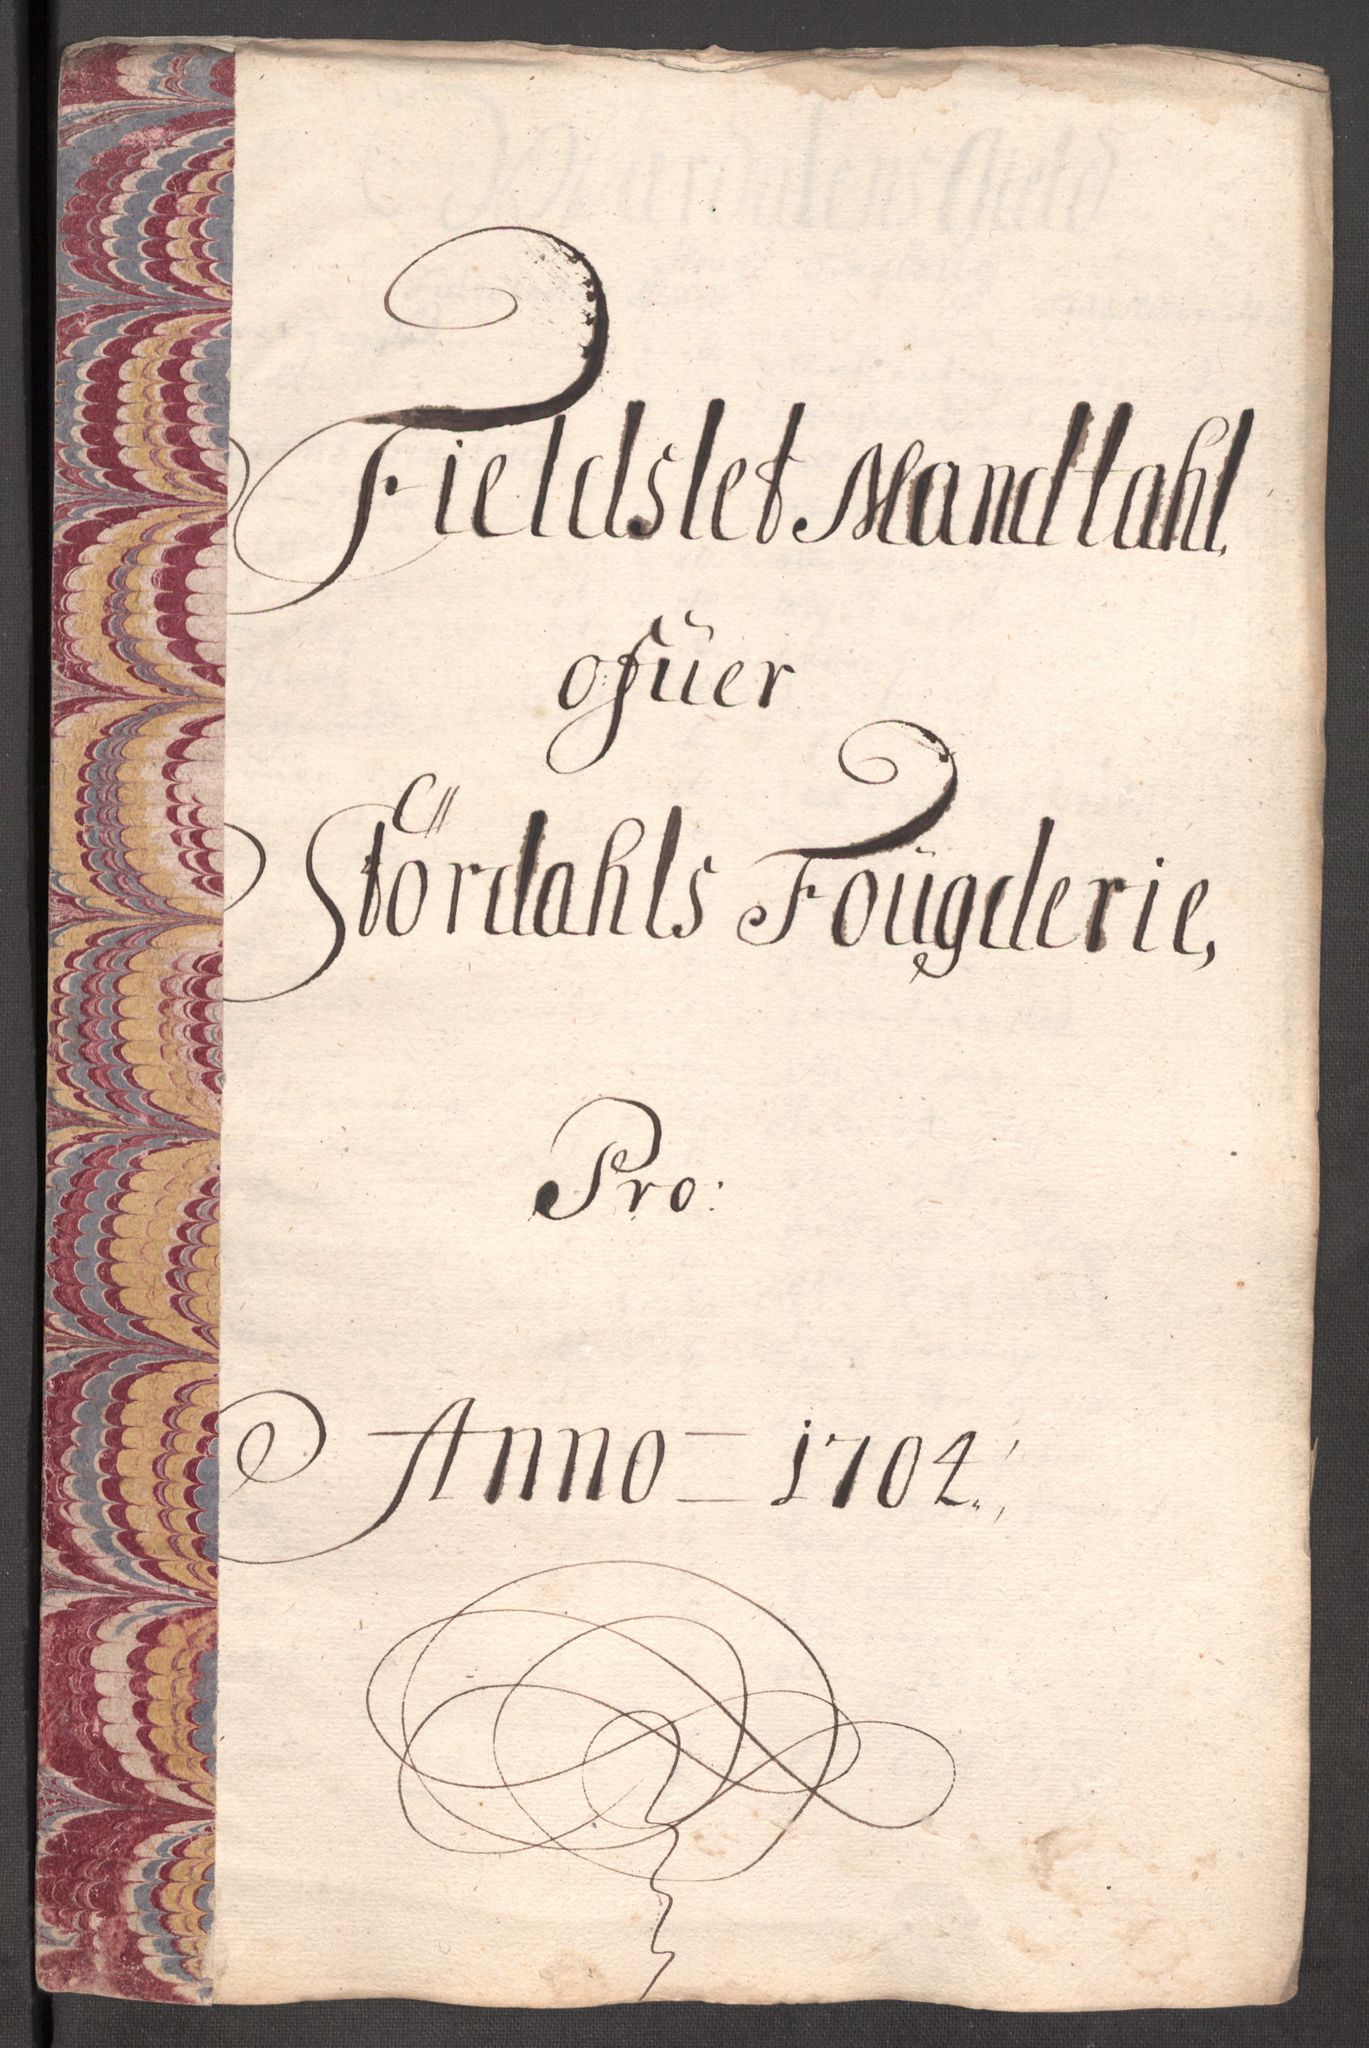 Fieldslet Mandtahl
ofüer
Stördahls Foügderie,
Pro:
Anno = 1704.